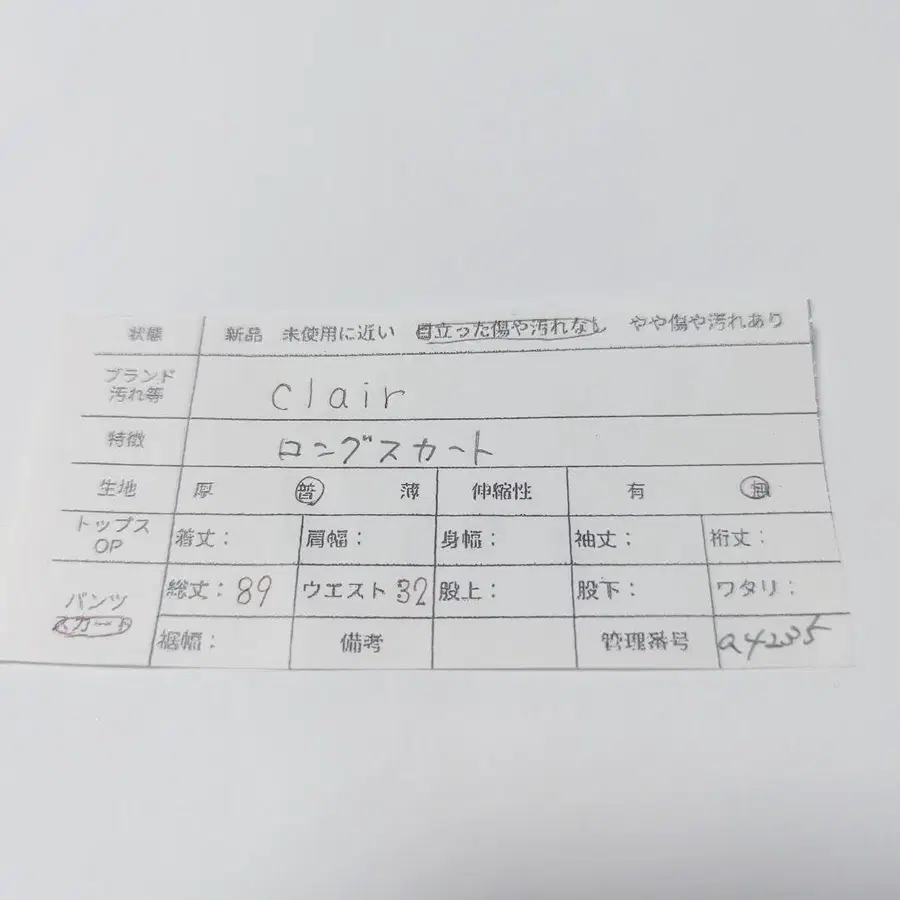 状態 新品 未使用に近い 目立った傷や汚れなし やや傷や汚れあり
ブランド
汚れ等 clair
特徴 ロングスカート
生地 厚 普 薄 伸縮性 有 無
トップス
OP 着丈: 肩幅: 身幅: 袖丈: 裄丈:
パンツ
スカート 総丈:89 ウエスト32 股上: 股下: ワタリ:
裾幅: 備考 管理番号